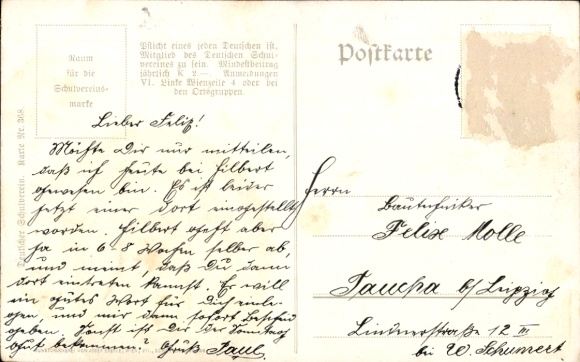 Raum
für die
Schulvereins-
marke
Pflicht eines jeden Deutschen ist,
Mitglied des Deutschen Schul-
vereines zu sein. Mindestbeitrag
jährlich K 2.—. Anmeldungen
VI. Linke Wienzeile 4 oder bei
den Ortsgruppen.
Postkarte
Deutscher Schulverein. Karte Nr. 368.
Lieber Felix!
Möchte Dir nur mitteilen,
daß ich heute bei Hilbert
gewesen bin. Es ist leider
jetzt einer dort eingestellt
worden. Hilbert geht aber
ja in 6-8 Wochen selber ab,
und meint, daß Du dann
dort eintreten kannst. Er will
ein gutes Wort für Dich einle-
gen, und mir dann sofort Bescheid
geben. Sonst ist Dir der Sonntag
gut bekommen? Gruß Paul.
Herrn
Bautechniker
Felix Molle
Taucha b/Leipzig
Lindnerstraße 12 III
bei W. Schumert